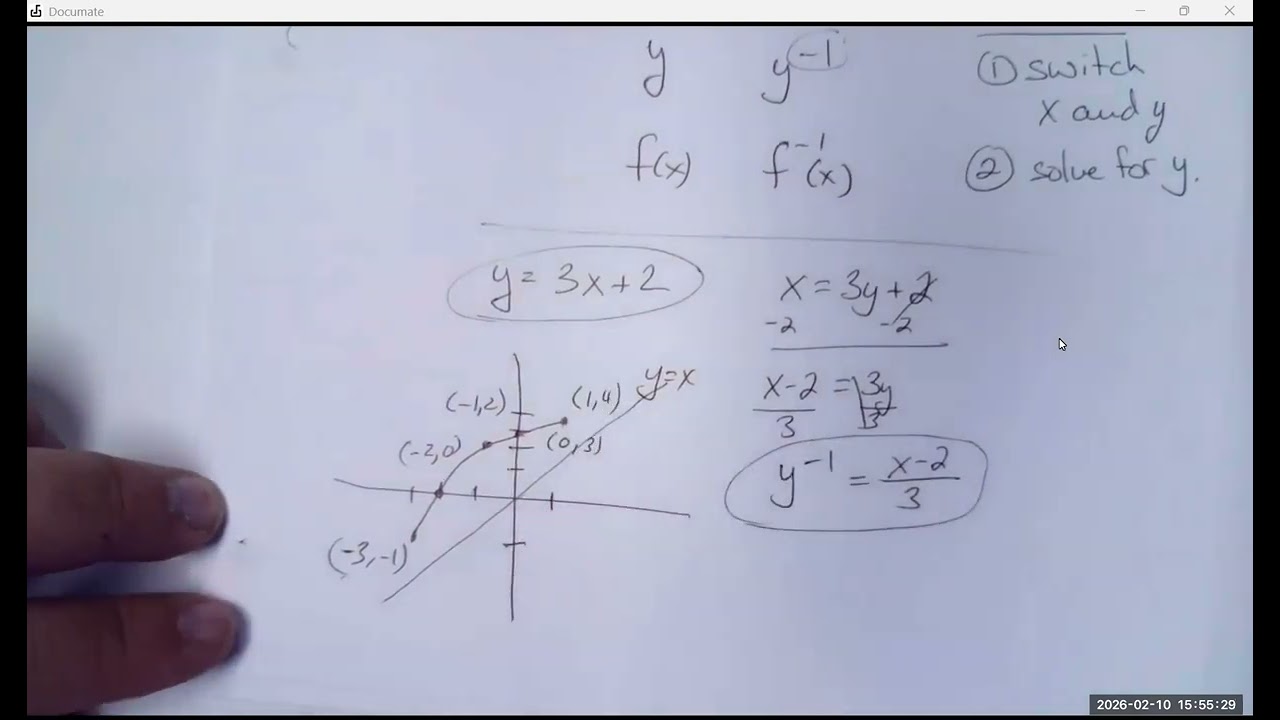 Documate
y y⁻¹ ① switch
x and y
f(x) f⁻¹(x) ② solve for y.
y = 3x+2 x = 3y + 2
-2 -2
x-2 = 3y
3 3
y⁻¹ = x-2
3
y=x
(-1,2) (1,4)
(-2,0) (0,3)
(-3,-1)
2026-02-10 15:55:29